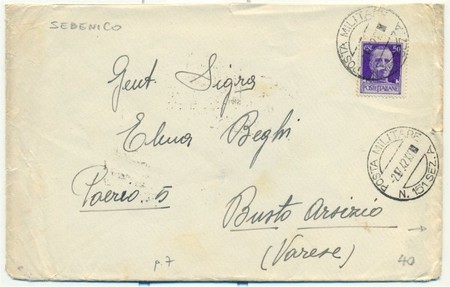 SEBENICO
POSTA MILITARE
50
POSTE ITALIANE
Gent. Sigra
Elena Beghi
POSTA MILITARE
N. 151 SEZ. A
Paerio 5
Busto Arsizio
(Varese)
p. 7
40